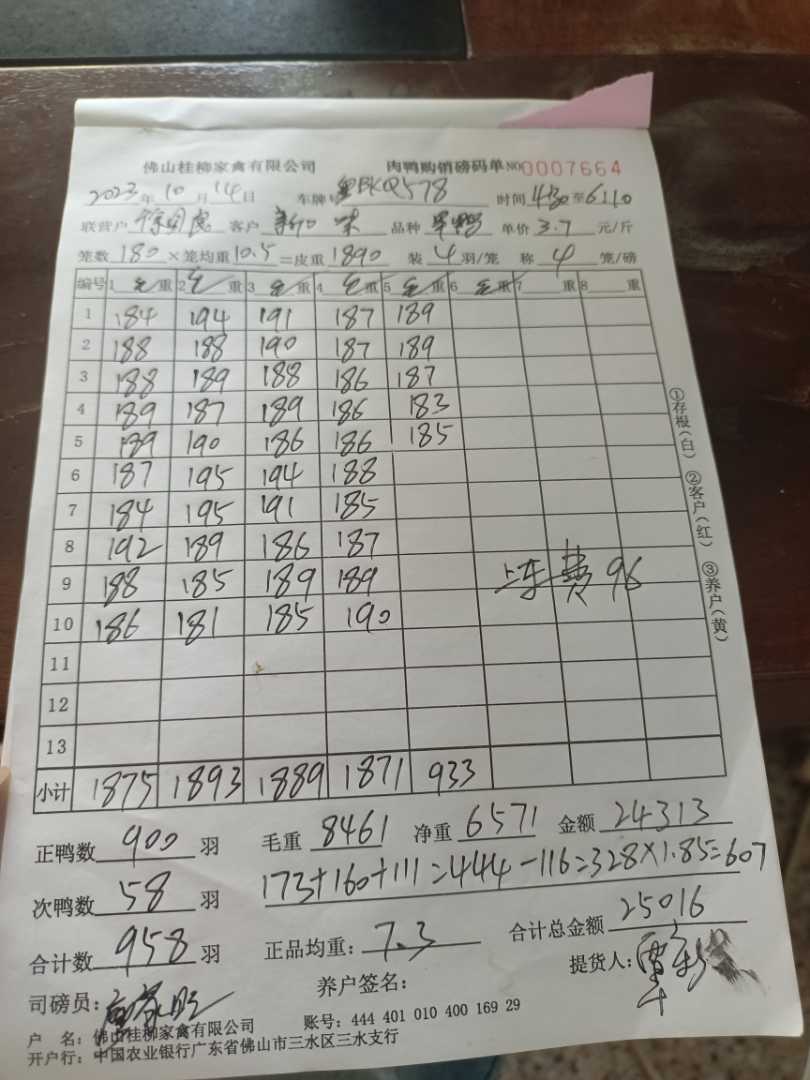 佛山桂柳家禽有限公司 肉鸭购销磅码单 NO 0007664
2023年10月14日 车牌号 粤BKQ578 时间 4:30至6:10
联营户 客户 新 味 品种 单价 3.7 元/斤
笼数 180 ×笼均重 10.5 =皮重 1890 装 4 羽/笼 称 4 笼/磅
编号 1 毛重 2 毛重 3 毛重 4 毛重 5 毛重 6 毛重 7 重 8 重
1 184 194 191 187 189
2 188 188 190 187 189
3 188 189 188 186 187
4 189 187 189 186 183
5 189 190 186 186 185
6 187 195 194 188
7 184 195 191 185
8 192 189 186 187
9 188 185 189 189
10 186 181 185 190
车费96
11
12
13
小计 1875 1893 1889 1871 933
①存根(白) ②客户(红) ③养户(黄)
正鸭数 900 羽 毛重 8461 净重 6571 金额 24313
次鸭数 58 羽 173+160+111=444-116=328×1.85=607
合计数 958 羽 正品均重: 7.3 合计总金额 25016
司磅员: 养户签名: 提货人:
户 名: 佛山桂柳家禽有限公司 账号: 444 401 010 400 169 29
开户行: 中国农业银行广东省佛山市三水区三水支行